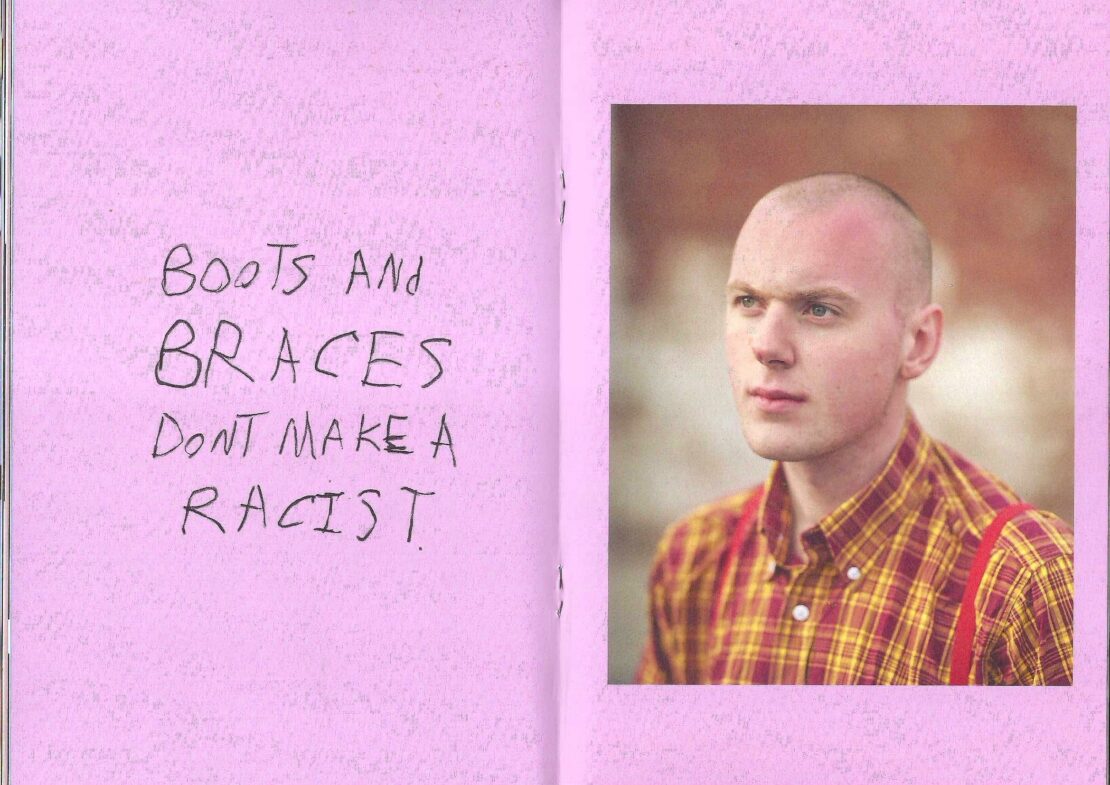 BOOTS AND
BRACES
DONT MAKE A
RACIST.